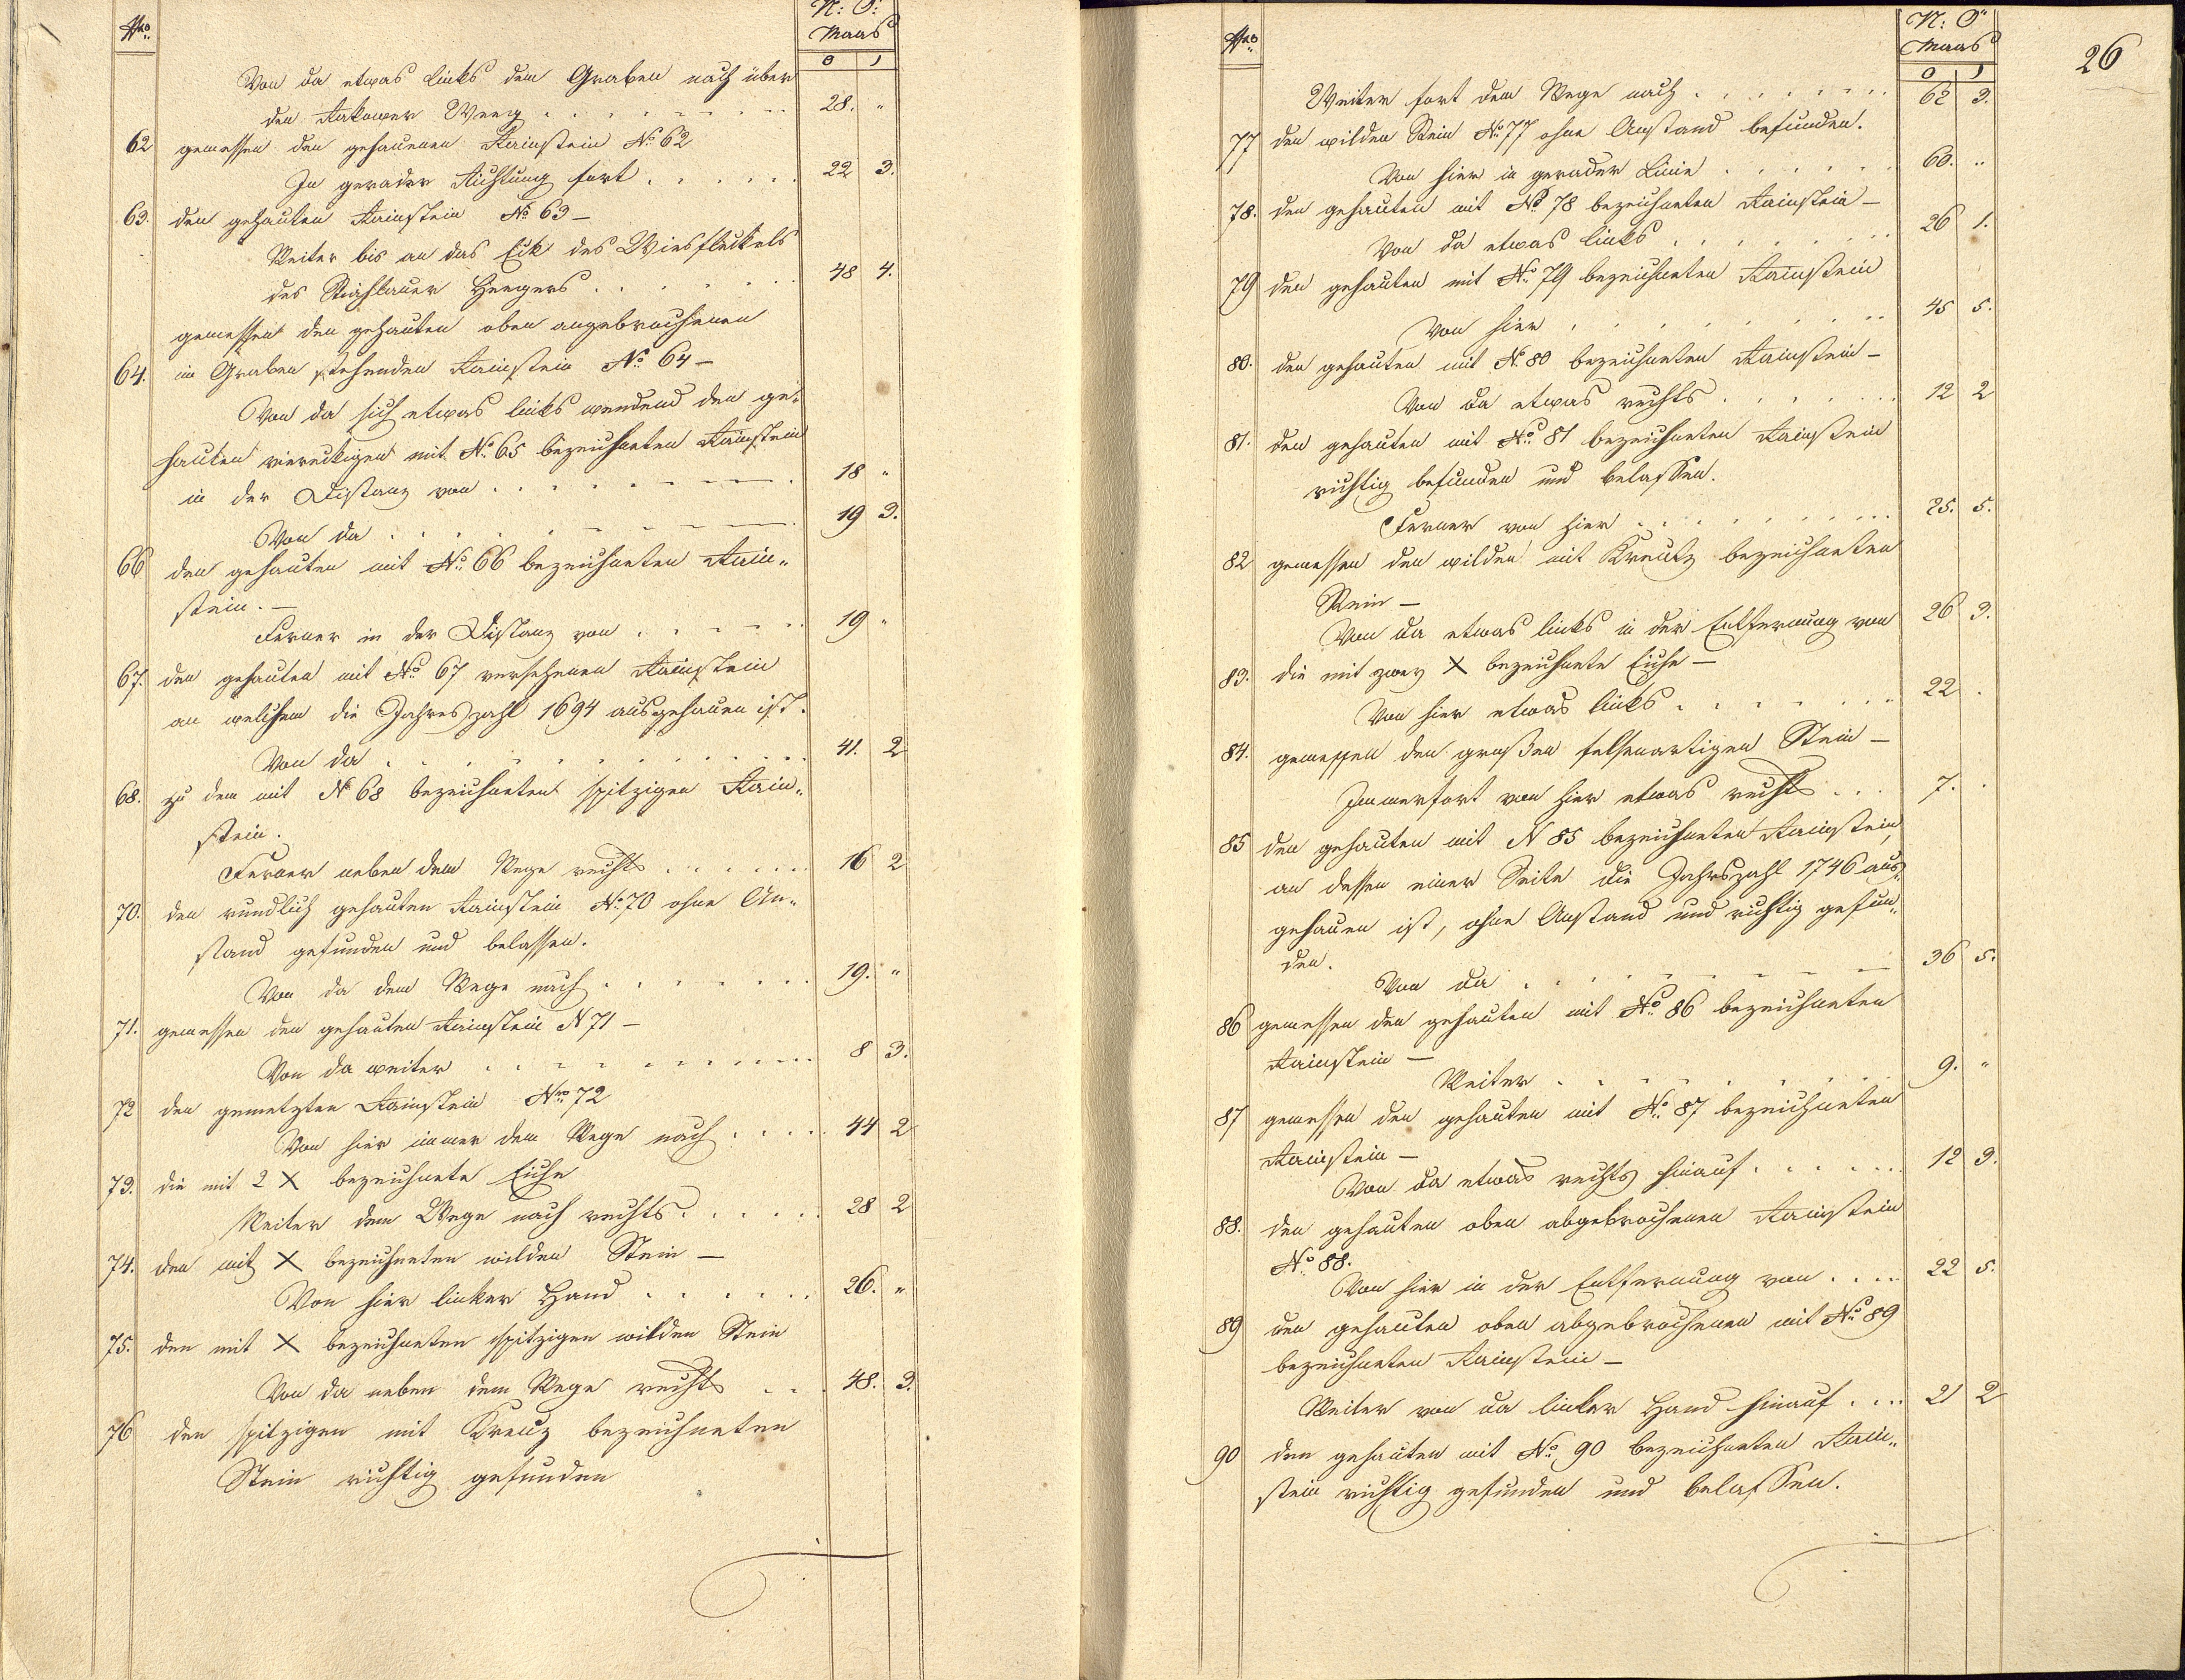 Nro.
N: Ö:
Maas
0 1
Von da etwas links dem Graben nach über
den Rakower Weeg . . . . . . . 28. "
62 gemessen den gehauenen Rainstein No. 62
In gerader Richtung fort . . . . . . 22 3.
63. den gehauten Rainstein No. 63 –
Weiter bis an das Eck des Wiesfleckels
des Heegers . . . . . . 48 4.
gemessen den gehauten oben angebrochenen
64. im Graben stehenden Rainstein No. 64 –
Von da sich etwas links wendend den ge-
hauten viereckigen mit No. 65 bezeichneten Rainstein
in der Distanz von . . . . . . . 18 "
Von da . . . . . . . 19 3.
66 den gehauten mit No. 66 bezeichneten Rain„
stein. –
Ferner in der Distanz von . . . . . 19 "
67. den gehauten mit No. 67 versehenen Rainstein
an welchem die Jahreszahl 1694 ausgehauen ist.
Von da . . . . . . . . 41. 2
68. zu dem mit No 68 bezeichneten spitzigen Rain„
stein.
Ferner neben dem Wege rechts . . . . . . 16 2
70. den rundlich gehauten Rainstein No. 70 ohne An„
stand gefunden und belassen.
Von da dem Wege nach . . . . . . . 19. "
71. gemessen den gehauten Rainstein N 71 –
Von da weiter . . . . . . . . 8 3.
72 den gemetzten Rainstein Nro. 72
Von hier immer dem Wege nach . . . . 44 2
73. die mit 2 X bezeichnete Eiche
Weiter dem Wege nach rechts . . . . . 28 2
74. den mit X bezeichneten wilden Stein –
Von hier linker Hand . . . . . . 26. "
75. den mit X bezeichneten spitzigen wilden Stein
Von da neben dem Wege rechts . . . 48. 3.
76 den spitzigen mit Kreuz bezeichneten
Stein richtig gefunden
26
Nro.
N: Ö"
Maas
0 1
Weiter fort dem Wege nach . . . . . . . 62 3.
77 den wilden Stein No. 77 ohne Anstand befunden.
Von hier in gerader Linie . . . . . . 60. "
78. den gehauten mit No. 78 bezeichneten Rainstein –
Von da etwas links . . . . . . . 26 1.
79 den gehauten mit No. 79 bezeichneten Rainstein
Von hier . . . . . . . . . 45 5.
80. den gehauten mit N. 80 bezeichneten Rainstein –
Von da etwas rechts . . . . . . . 12 2
81. den gehauten mit No. 81 bezeichneten Rainstein
richtig befunden und belassen.
Ferner von hier . . . . . . . . 25. 5.
82 gemessen den wilden mit Kreutz bezeichneten
Stein –
Von da etwas links in der Entfernung von 26 3.
83. die mit zwey X bezeichnete Eiche –
Von hier etwas links . . . . . . . 22 .
84. gemessen den großen felsenartigen Stein –
Immerfort von hier etwas rechts . . . 7. .
85 den gehauten mit N 85 bezeichneten Rainstein,
an dessen einer Seite die Jahrszahl 1746 aus„
gehauen ist, ohne Anstand und richtig gefun„
den.
Von da . . . . . . . . 36 5.
86 gemessen den gehauten mit No. 86 bezeichneten
Rainstein –
Weiter . . . . . . . . 9. "
87 gemessen den gehauten mit No. 87 bezeichneten
Rainstein –
Von da etwas rechts hinauf . . . . . . 12 3.
88. den gehauten oben abgebrochenen Rainstein
No. 88.
Von hier in der Entfernung von . . . . 22 5.
89 den gehauten oben abgebrochenen mit No. 89
bezeichneten Rainstein –
Weiter von da linker Hand hinauf . . . 21 2
90 den gehauten mit No. 90 bezeichneten Rain„
stein richtig gefunden und belassen.